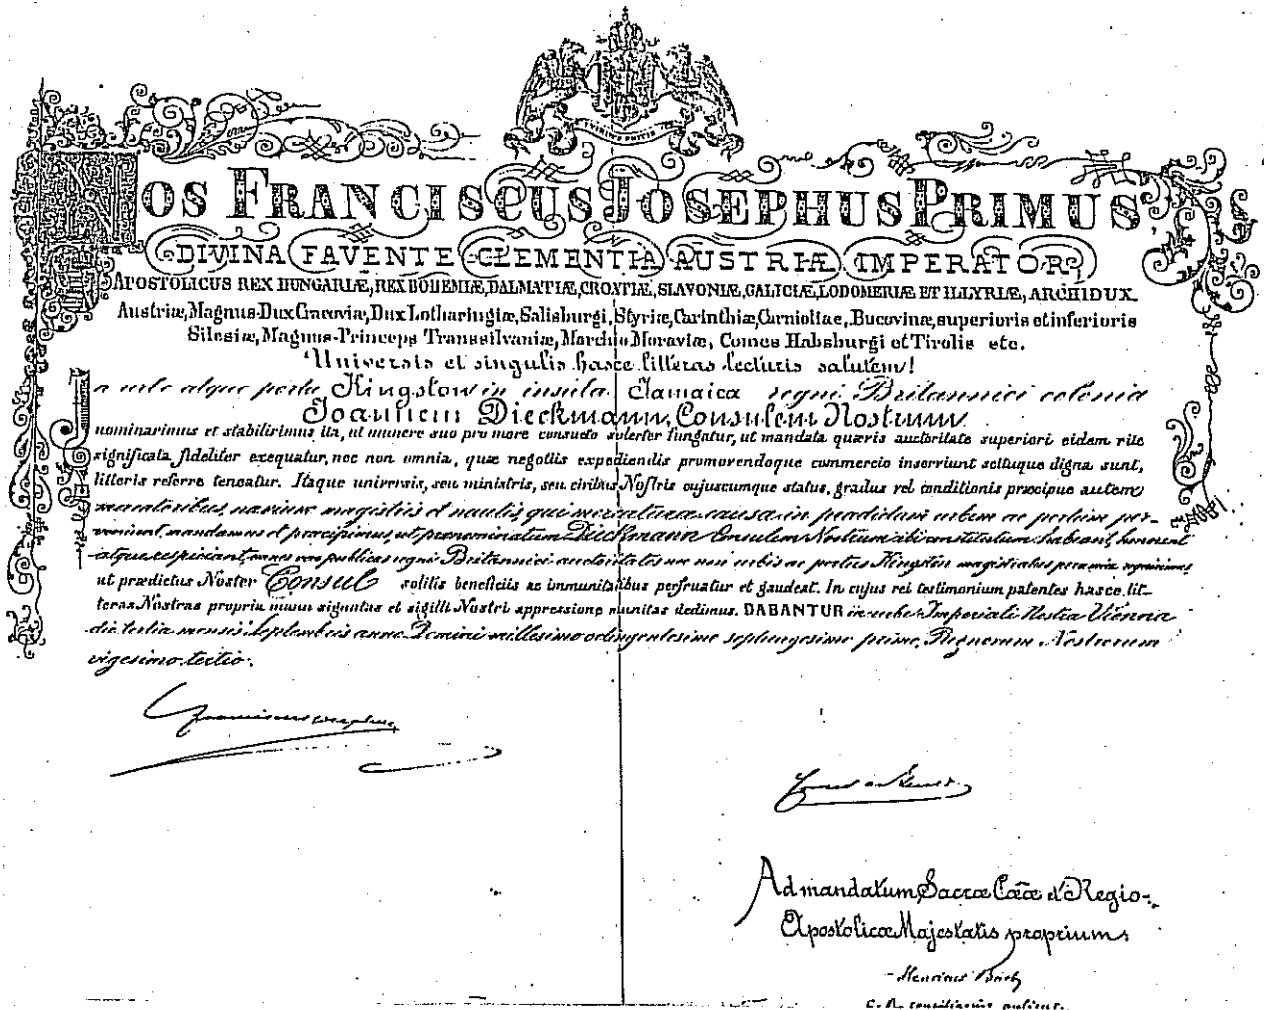 NOS FRANCISCUS JOSEPHUS PRIMUS
DIVINA FAVENTE CLEMENTIA AUSTRIÆ IMPERATOR,
APOSTOLICUS REX HUNGARIÆ, REX BOHEMIÆ, DALMATIÆ, CROATIÆ, SLAVONIÆ, GALICIÆ, LODOMERIÆ ET ILLYRIÆ, ARCHIDUX
Austriæ, Magnus Dux Cracoviæ, Dux Lotharingiæ, Salisburgi, Styriæ, Carinthiæ, Carnioliae, Bucovinæ, superioris et inferioris
Silesiæ, Magnus Princeps Transsilvaniæ, Marchio Moraviæ, Comes Habsburgi et Tirolis etc.
Universis et singulis hasce litteras lecturis salutem!
In urbe atque portu Kingston in insula Jamaica regni Britannici colonia
Joannem Dieckmann, Consulem Nostrum
nominavimus et stabilivimus ita, ut munere suo pro more consueto solerter fungatur, ut mandata quævis auctoritate superiori eidem rite
significata fideliter exequatur, nec non omnia, quæ negotiis expediendis promovendoque commercio inserviunt scituque digna sunt,
litteris referre teneatur. Itaque universis, seu ministris, seu civibus Nostris cujuscumque status, gradus vel conditionis præcipue autem
mercatoribus, navium magistris et nautis, qui mercaturæ causa in prædictam urbem ac portum per-
veniunt, mandamus et præcipimus, ut prænominatum Dieckmann Consulem Nostrum ibi constitutum habeant, honorent
atque suspiciant, publicas regni Britannici auctoritates urbis ac portus Kingston magistratus
ut prædictus Noster Consul solitis beneficiis ac immunitatibus perfruatur et gaudeat. In cujus rei testimonium patentes hasce lit-
teras Nostras propria manu signatas et sigilli Nostri appressione munitas dedimus. DABANTUR in urbe Imperiali Nostra Vienna
die tertia mensis Septembris anno Domini millesimo octingentesimo septuagesimo primo, Regnorum Nostrorum
vigesimo tertio.
Franciscus Josephus
Ad mandatum Sacræ Cæsæ et Regio-
Apostolicæ Majestatis proprium
Henricus
C. R. consiliarius aulicus.